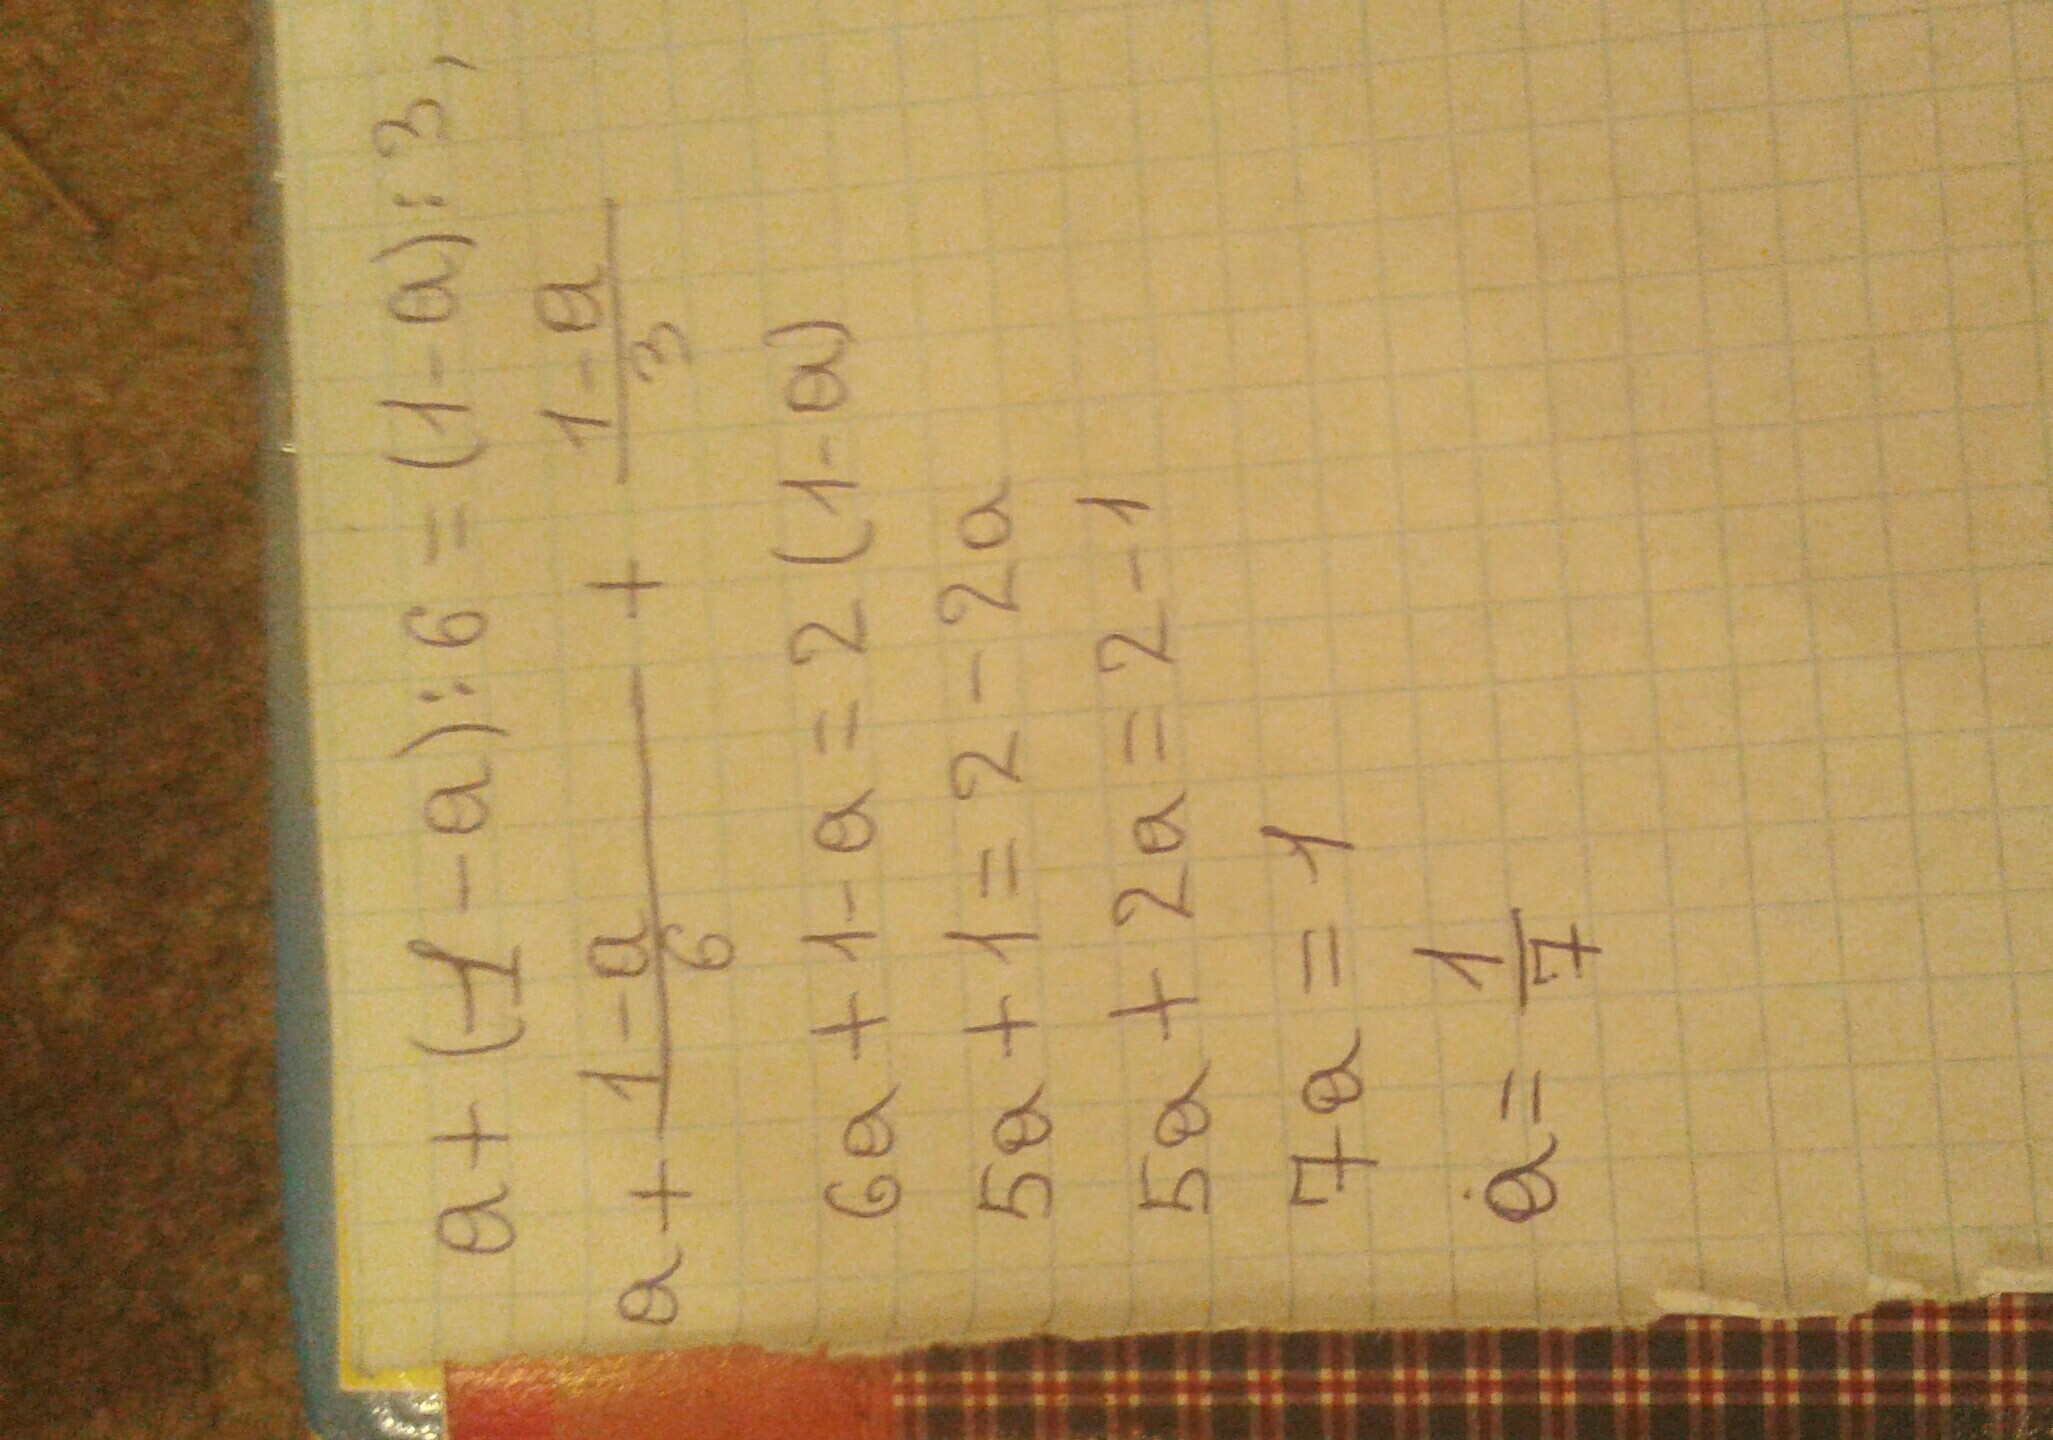 a + (1 - a) : 6 = (1 - a) : 3,
a + \frac{1-a}{6} + \frac{1-a}{3}
6a + 1 - a = 2 (1 - a)
5a + 1 = 2 - 2a
5a + 2a = 2 - 1
7a = 1
a = \frac{1}{7}